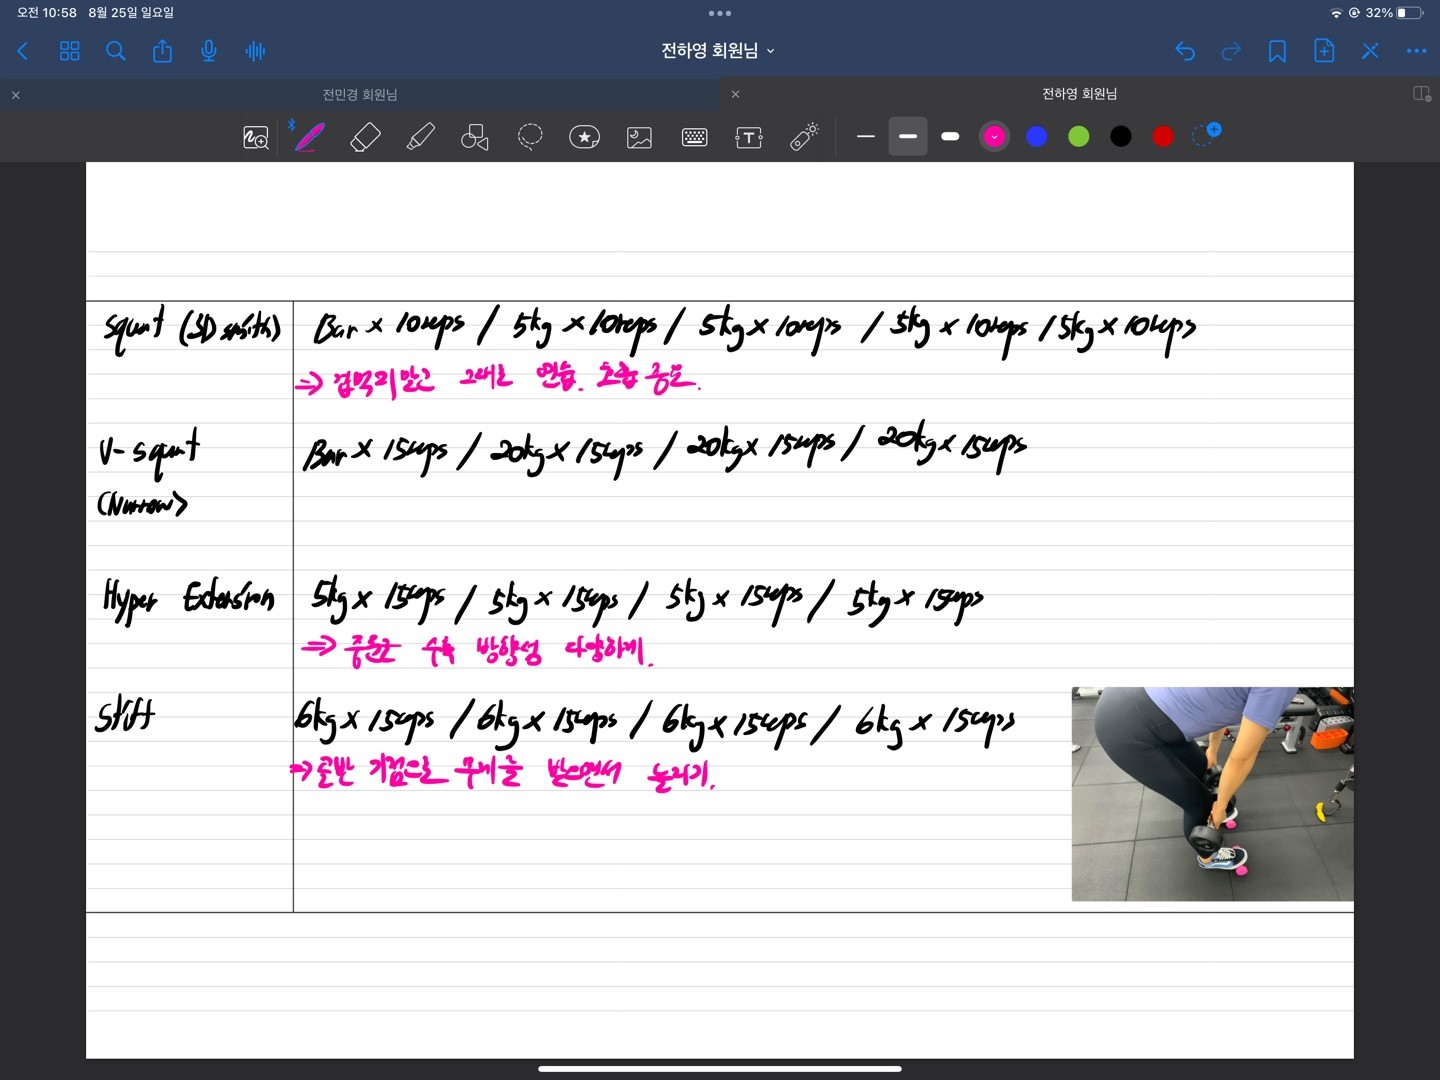 오전 10:58 8월 25일 일요일
32%
전하영 회원님
전민경 회원님
전하영 회원님
T
Squat (3D smith) Bar × 10reps / 5kg × 10reps / 5kg × 10reps / 5kg × 10reps / 5kg × 10reps
⇒ 겁먹지말고 그대로 연습. 호흡 중요.
V-squat Bar × 15reps / 20kg × 15reps / 20kg × 15reps / 20kg × 15reps
(Narrow)
Hyper Extension 5kg × 15reps / 5kg × 15reps / 5kg × 15reps / 5kg × 15reps
⇒ 중둔근 수축 방향성 다양하게.
Stiff 6kg × 15reps / 6kg × 15reps / 6kg × 15reps / 6kg × 15reps
⇒ 골반 기점으로 무게를 받으면서 눌리기.